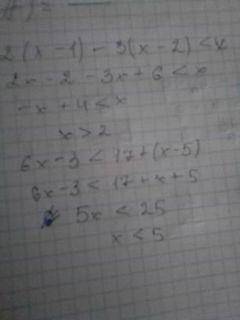 2(x-1)-3(x-2)<x
2x-2-3x+6<x
-x+4<x
x>2
6x-3<17+(x-5)
6x-3<17+x+5
5x<25
x<5